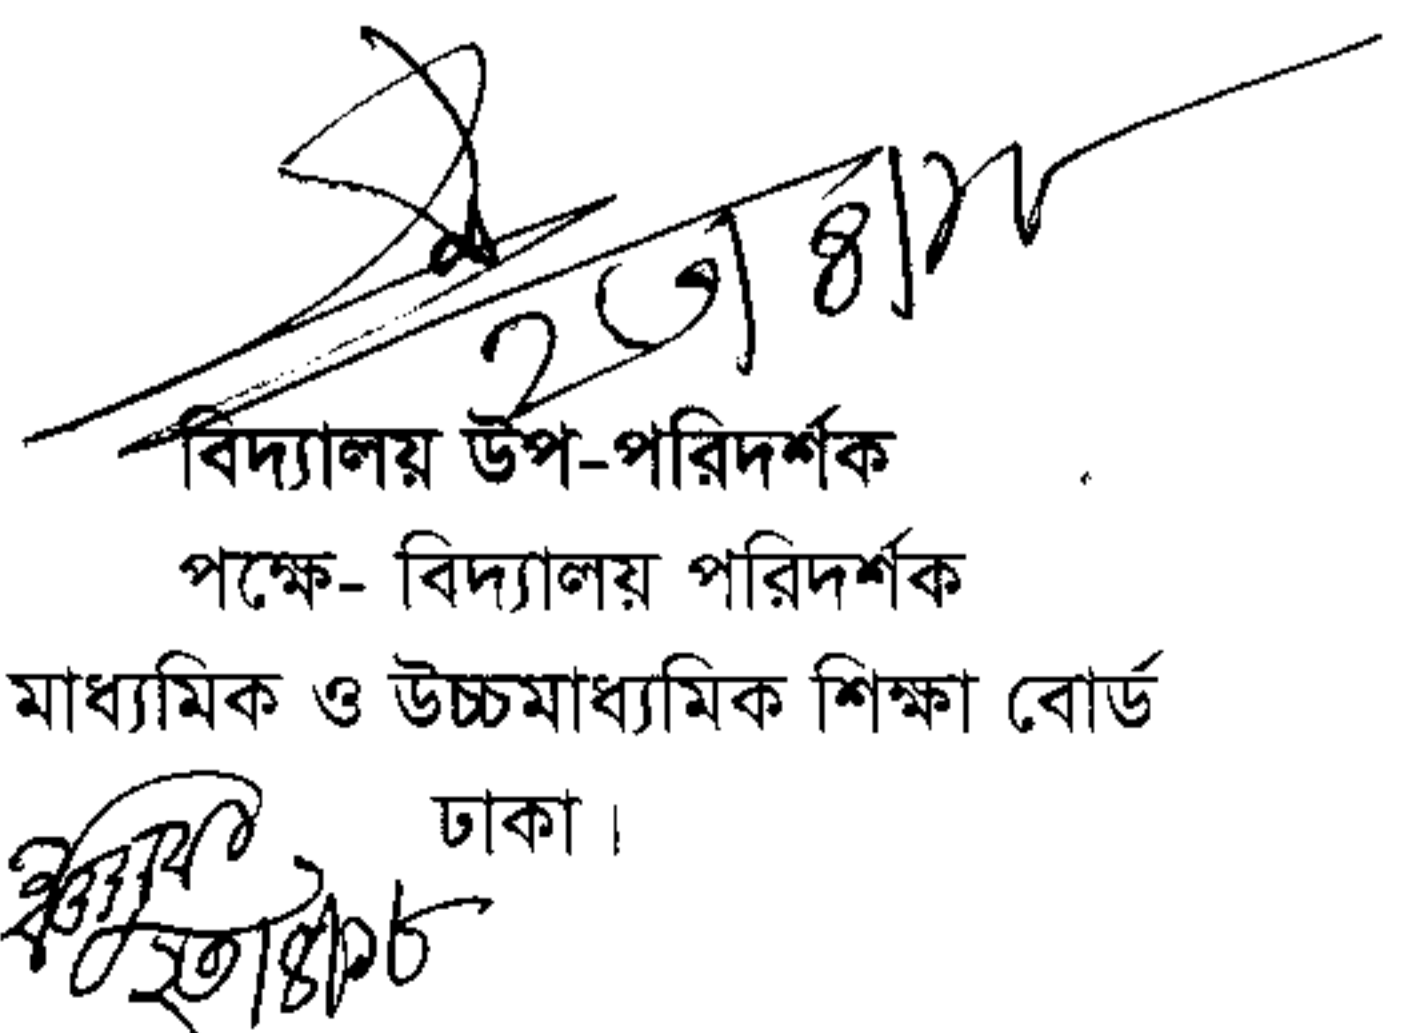 ২৩|৪|১৮
বিদ্যালয় উপ-পরিদর্শক
পক্ষে- বিদ্যালয় পরিদর্শক
মাধ্যমিক ও উচ্চমাধ্যমিক শিক্ষা বোর্ড
ঢাকা।
২৩|৪|১৮